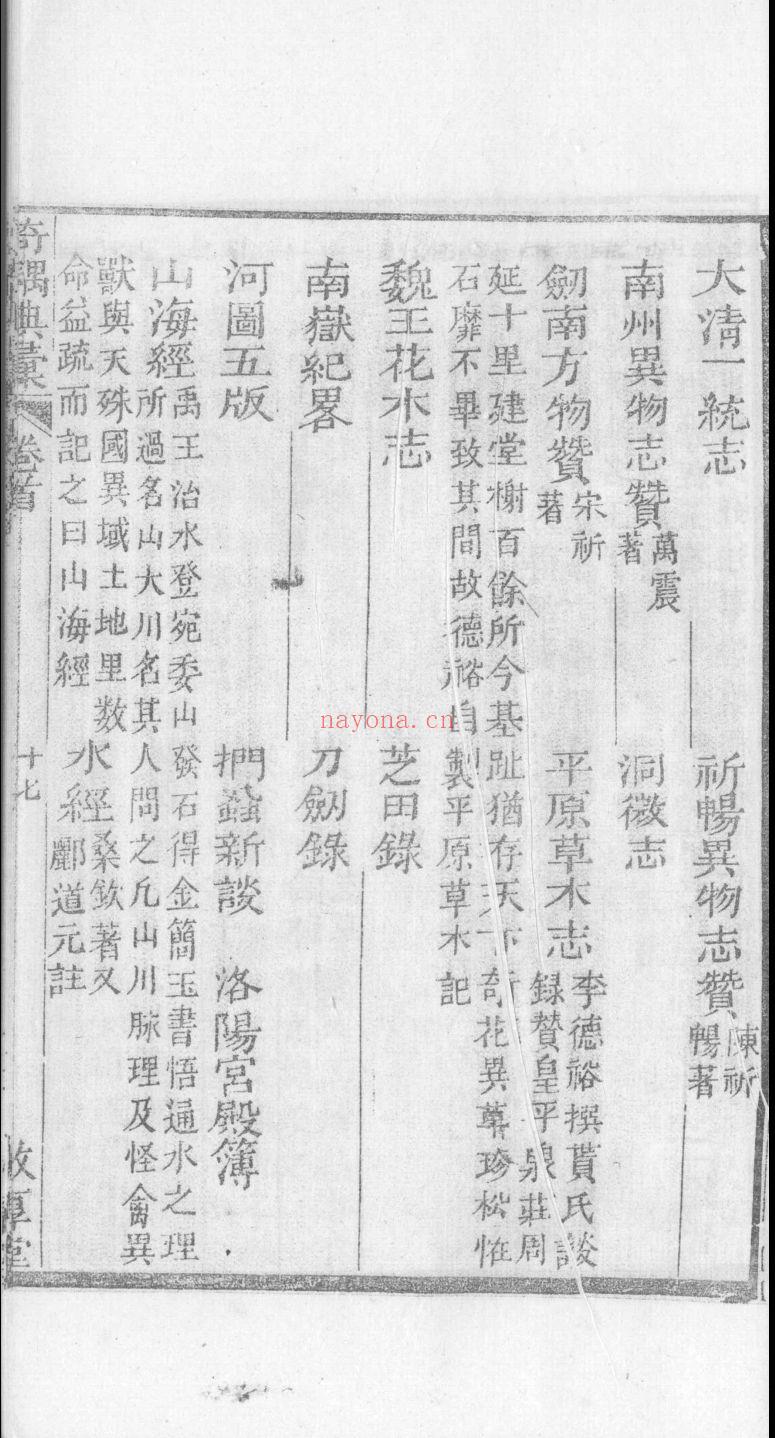 大清一統志 祈暢異物志贊陳祈暢著
南州異物志贊萬震著 洞微志
劒南方物贊宋祈著 平原草木志李德裕撰賈氏談録贊皇平泉莊周
延十里建堂榭百餘所今基趾猶存天下奇花異草珍松恠
石靡不畢致其間故德裕自製平原草木記
魏王花木志 芝田錄
南嶽紀畧 刀劒錄
河圖五版 捫蝨新談 洛陽宮殿簿
山海經禹王治水登宛委山發石得金簡玉書悟通水之理所過名山大川名其人問之凢山川脉理及怪禽異
獸與天殊國異域土地里数 水經桑欽著又
命益疏而記之曰山海經 酈道元註
奇偶典彙 卷首 十七 敦厚堂
nayona.cn